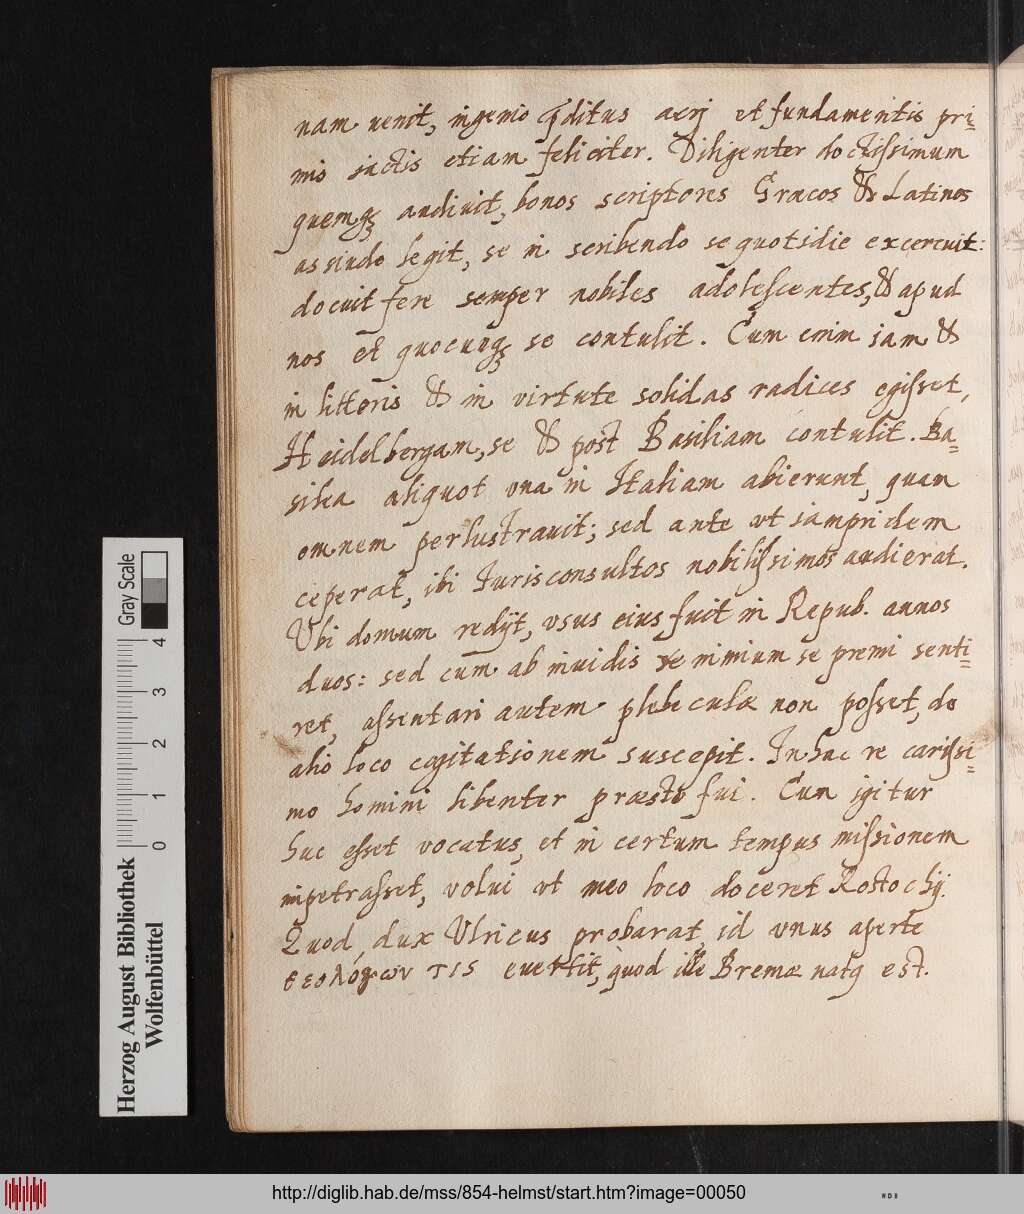 nam uenit, ingenio p̄ditus acrj et fundamentis pri=
mis iactis etiam feliciter. Diligenter doctissimum
quemqȝ audiuit, bonos scriptores Græcos & Latinos
assiudo legit, se in scribendo se quotidie excercuit:
docuit fere semper nobiles adolescentes, & apud
nos et quocunqȝ se contulit. Cum enim iam &
in litteris & in virtute solidas radices egisset,
Heidelbergam, se & post Basiliam contulit. Ba=
silea aliquot una in Italiam abierunt, quam
omnem perlustrauit; sed ante ut iampridem
ceperat, ibi Jurisconsultos nobilissimos audierat.
Vbi domum redijt, vsus eius fuit in Repub. annos
duos: sed cum ab inuidis nimium se premi senti=
ret, assentari autem plebeculæ non posset, de
alio loco cogitationem suscepit. In hac re carissi=
mo homini libenter præsto fui. Cum igitur
huc esset vocatus, et in certum tempus missionem
impetrasset, volui ut meo loco doceret Rostochij.
Quod dux Vlricus probarat, id vnus aperte
θεολόγων τις euertit, quod ille Bremæ natq est.
Herzog August Bibliothek
Wolfenbüttel
Gray Scale
0 1 2 3 4
http://diglib.hab.de/mss/854-helmst/start.htm?image=00050